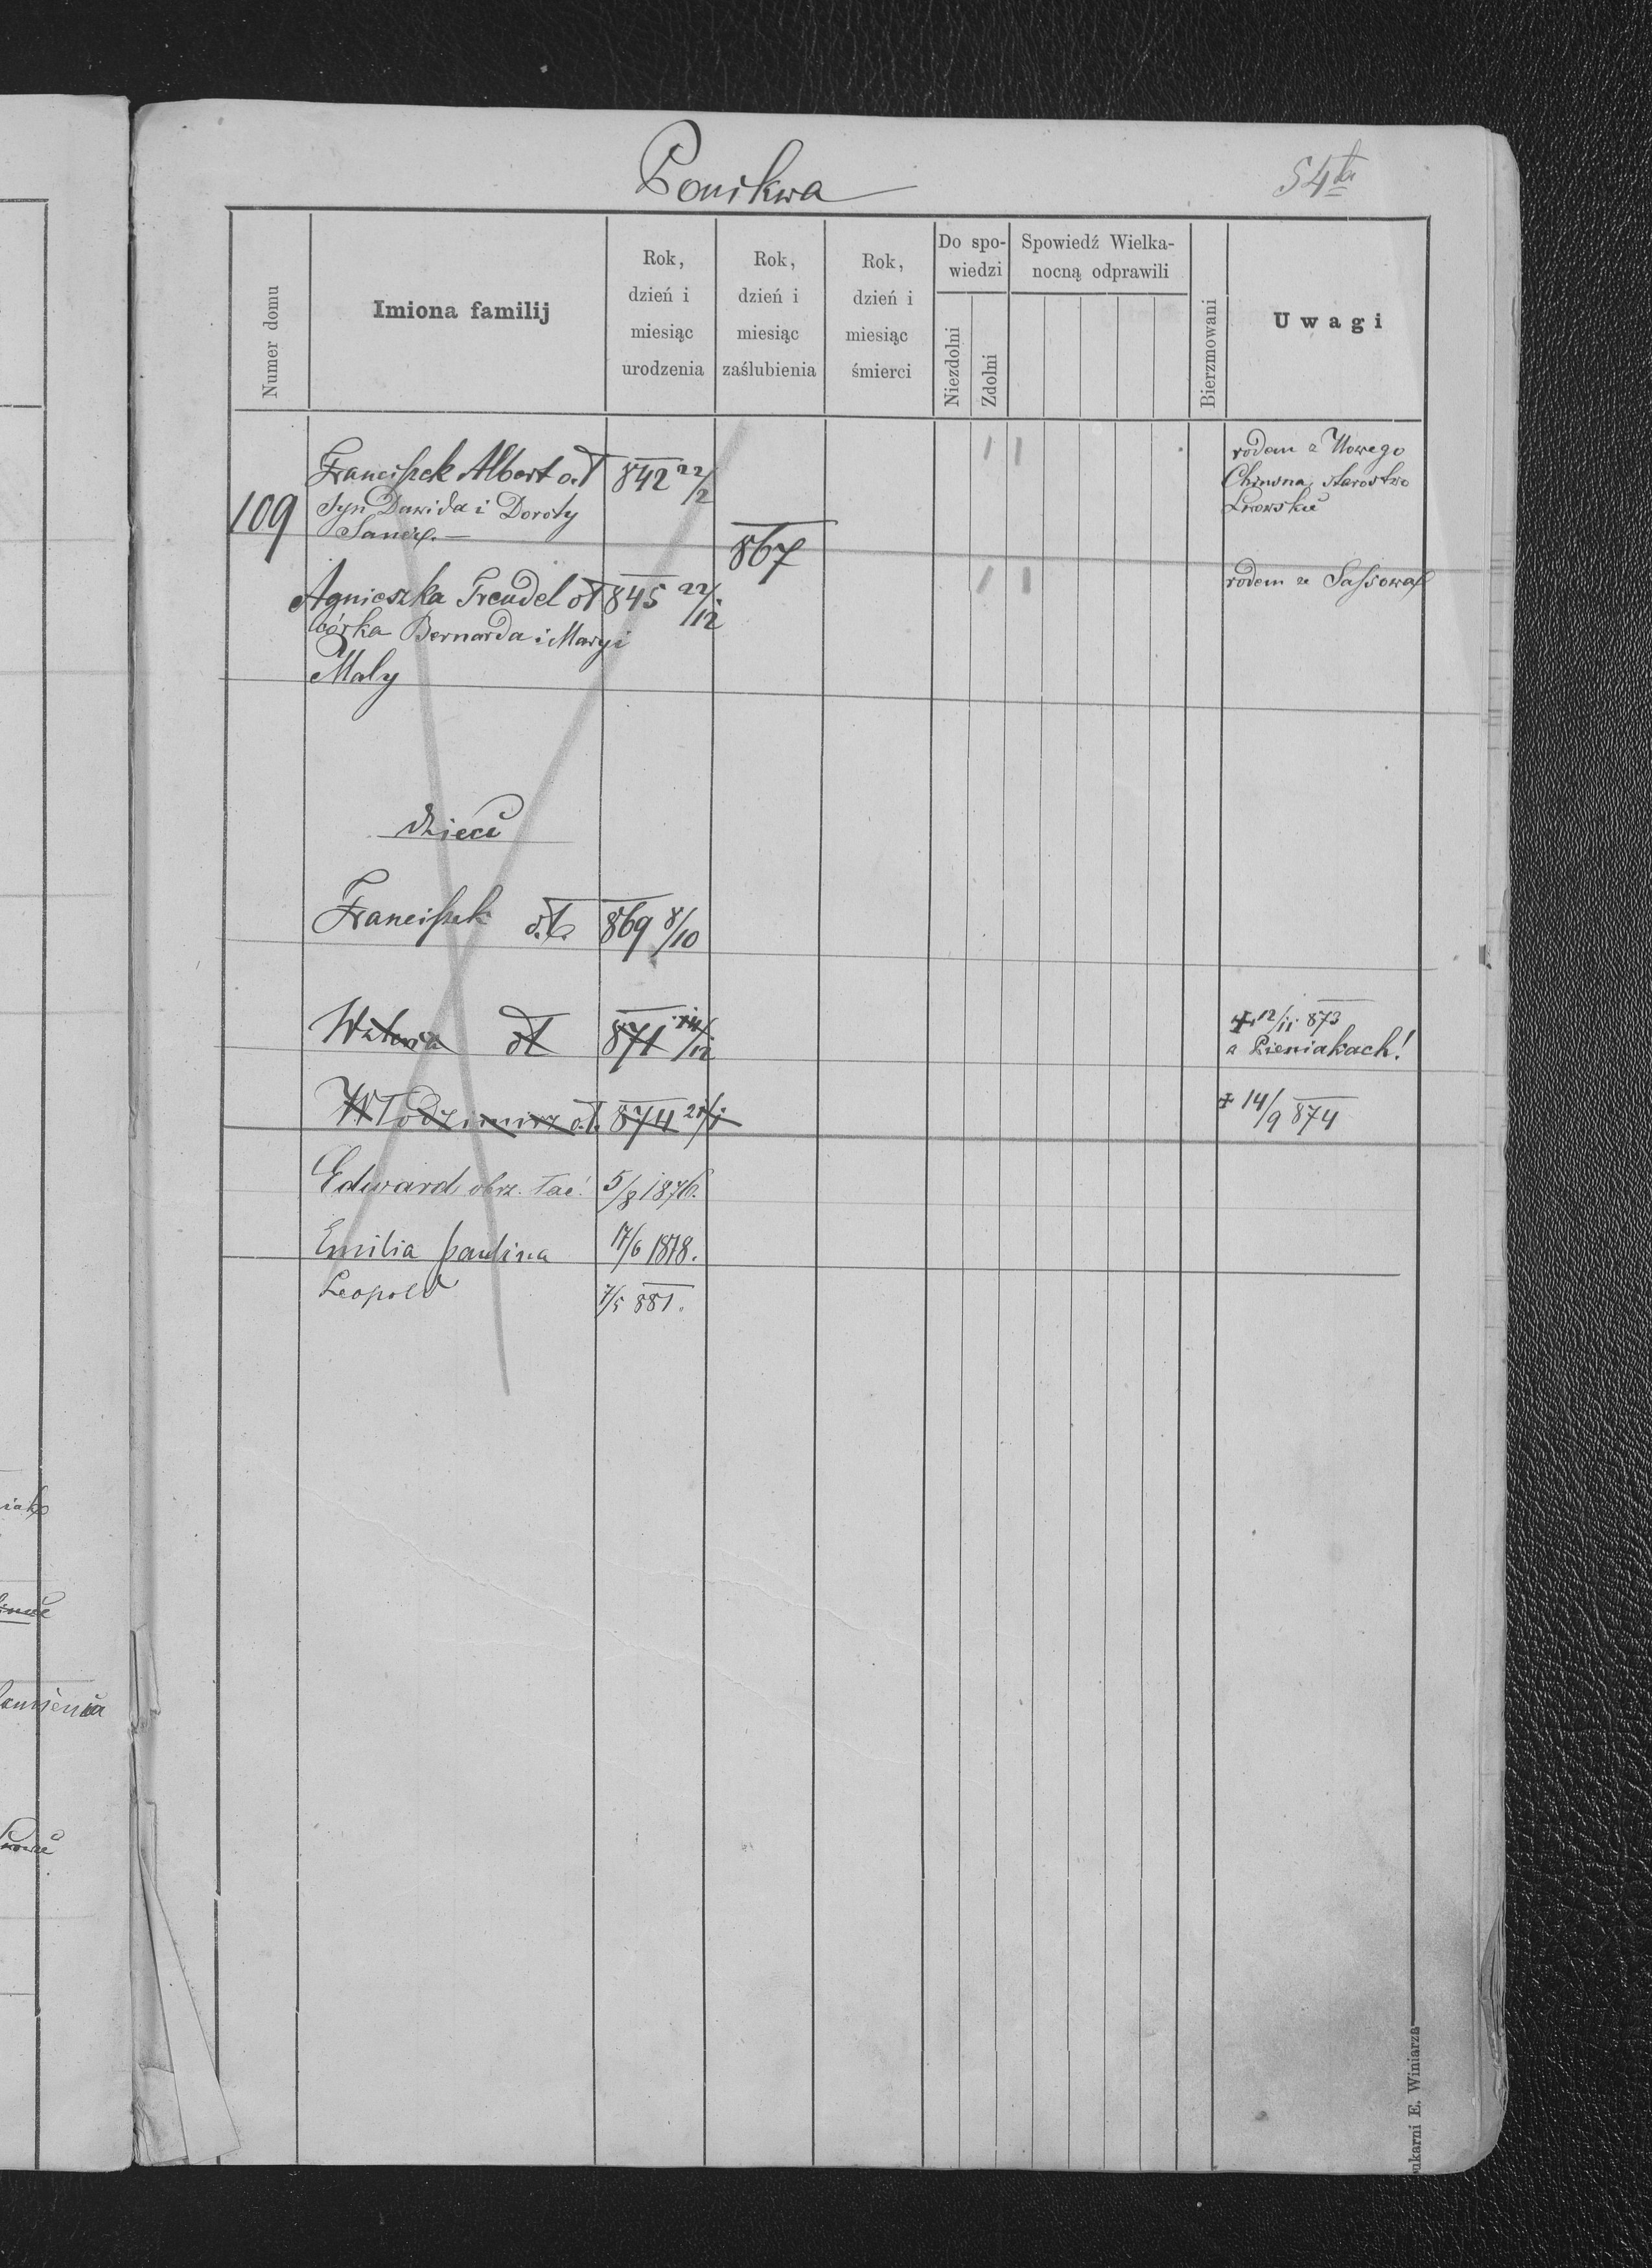 Ponikwa
54
Numer domu
Imiona familij
Rok,
dzień i
miesiąc
urodzenia
Rok,
dzień i
miesiąc
zaślubienia
Rok,
dzień i
miesiąc
śmierci
Do spo-
wiedzi
Niezdolni
Zdolni
Spowiedź Wielka-
nocną odprawili
Bierzmowani
Uwagi
109
Franciszek Albert o.ł 842 22/2
syn Dawida i Doroty
867
Agnieszka Trendel oł 845 22/12
córka Bernarda i Maryi
Maly
rodem z Nowego
starostwo
Lwowskie
rodem ze Sassowa
dzieci
Franciszek o.ł. 869 8/10
oł 871 14/12
+ 12/11 873
Pieniakach!
Włodzimirz o.ł. 874 21/1
+ 14/9 874
Edward obrz. łać. 5/8 1876.
Emilia paulina 17/6 1878.
Leopold 7/5 881.
ukarni E. Winiarza